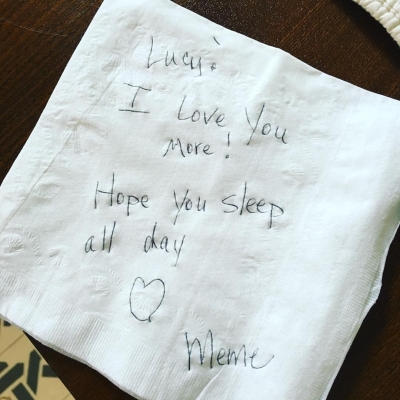 Lucy:
I Love You
More!
Hope you sleep
all day
Meme